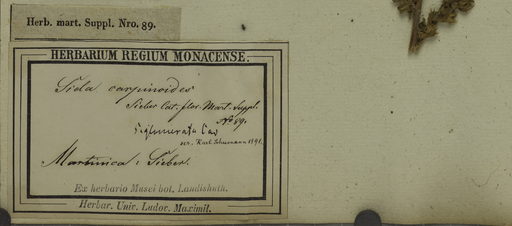 Herb. mart. Suppl. Nro. 89.
HERBARIUM REGIUM MONACENSE.
Sida carpinoides
Sieber Cat. flor. Mart. Suppl.
No 89.
S. glomerata Cav
scr. Karl Schumann 1891.
Martinica: Sieber.
Ex herbario Musei bot. Landishuth.
Herbar. Univ. Ludov. Maximil.